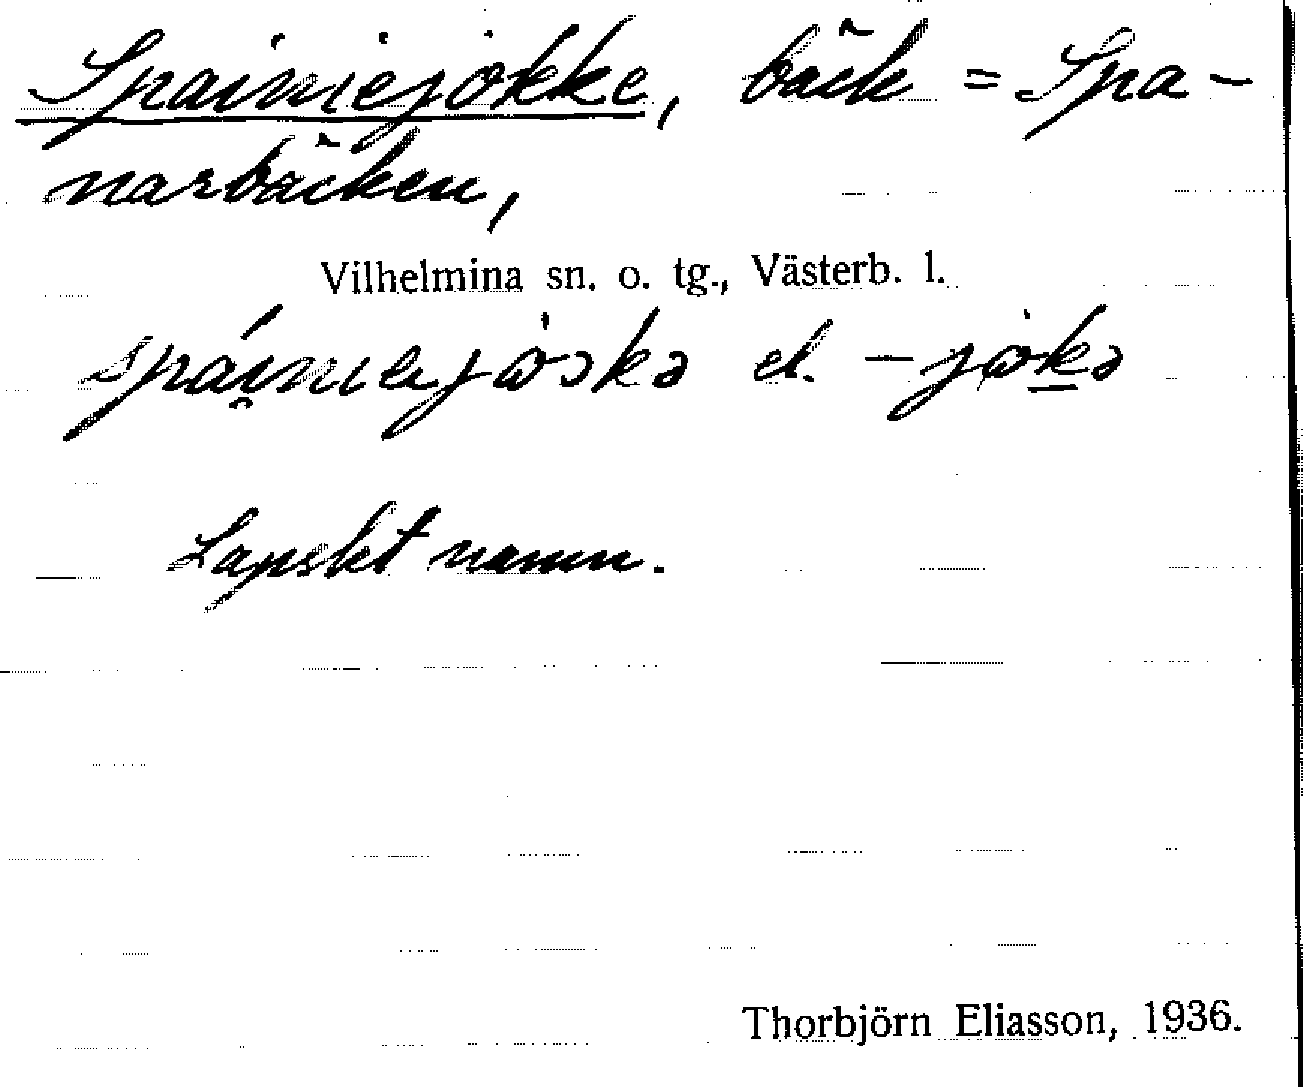 Spainiejokke, bäck = Spa-
narbäcken,
Vilhelmina sn. o. tg., Västerb. l.
el.
Lapskt namn.
Thorbjörn Eliasson, 1936.